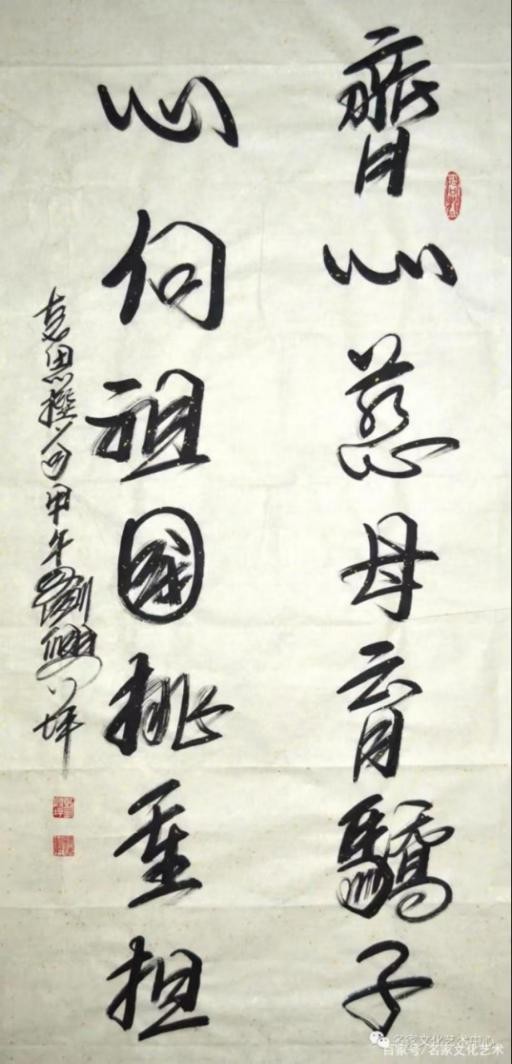 齊心慈母育驕子
心向祖國挑重担
思撰句甲午劉興坪
名家文化艺术中心
百家号/名家文化艺术